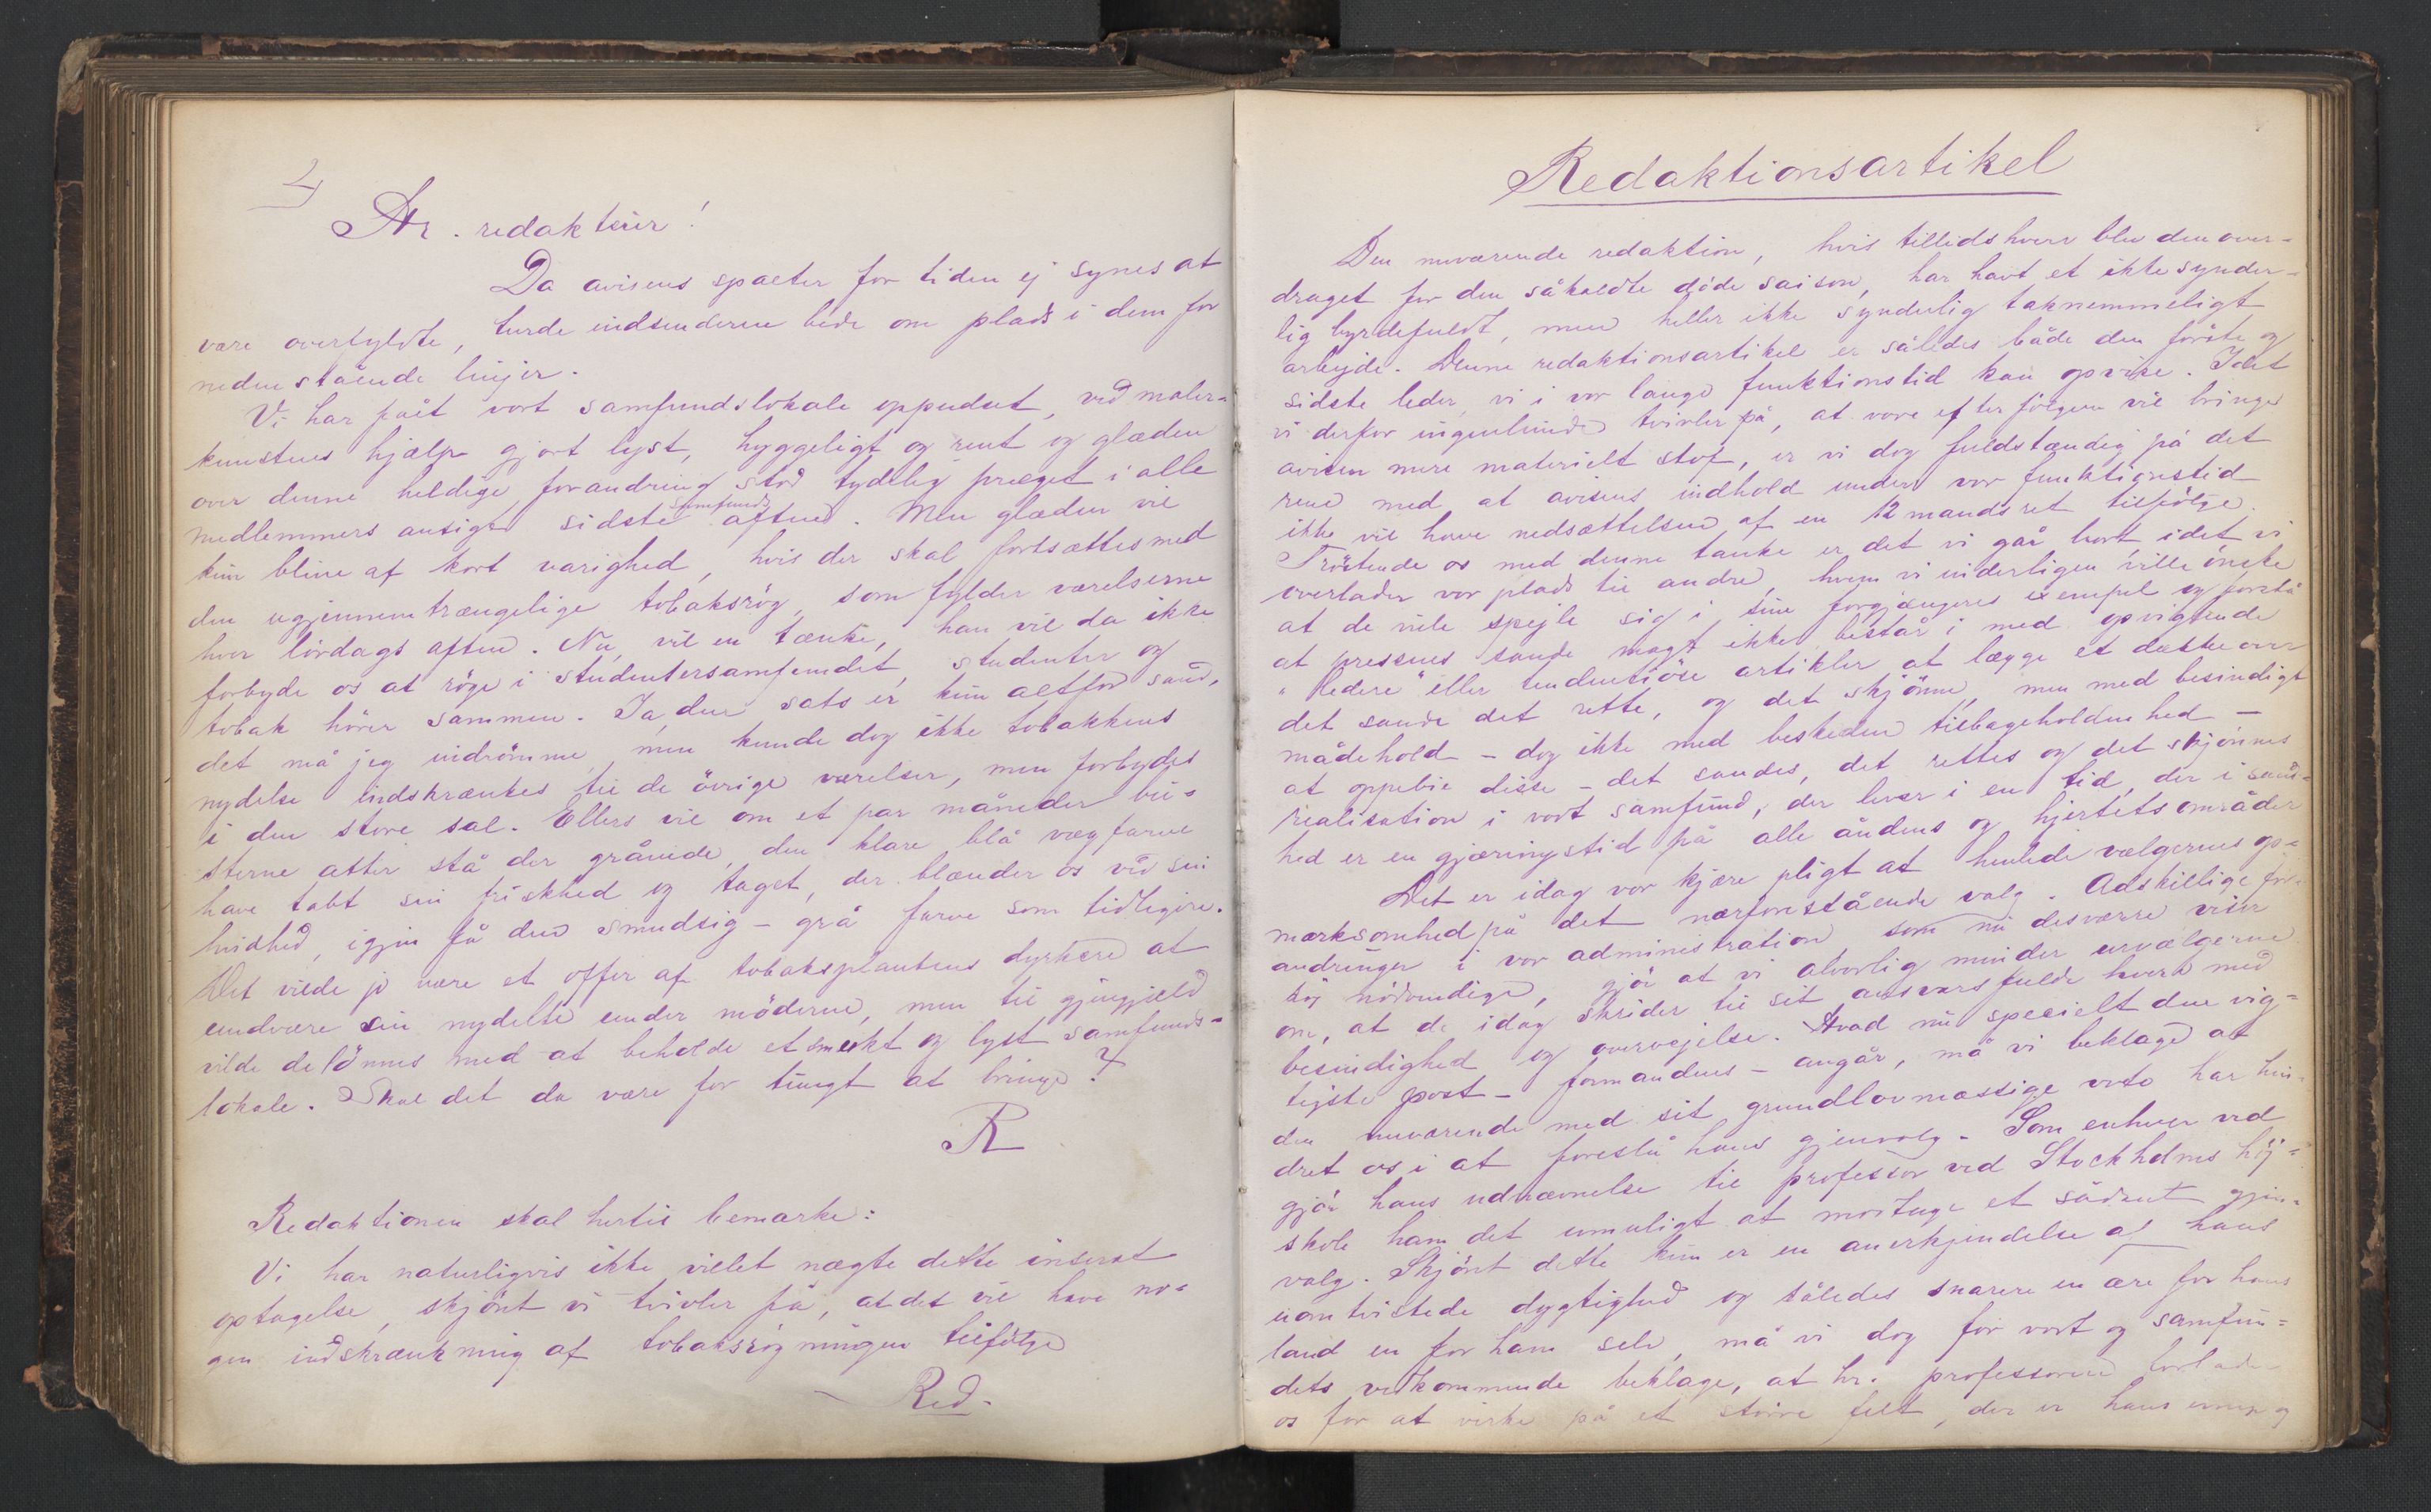 4
Hr. redaktør!
Da avisens spalter for tiden ej synes at
være overfyldte, turde indsenderne bede om plads i dem for
nedenstående linjer.
Vi har fået vort samfundslokale oppudset, ved maler-
kunstens hjælp gjort lyst, hyggeligt og rent og glæden
over denne heldige forandring stod tydelig præget i alle
medlemmers ansigter sidste samfundsaften. Men glæden vil
kun blive af kort varighed, hvis der skal fortsættes med
den ugjennemtrængelige tobaksrøg, som fylder værelserne
hver lørdags aften. Nu, vil en tænke, han vil da ikke
forbyde os at røge i studentersamfundet, studenter og
tobak hører sammen. Ja, den sats er kun altfor sand,
det må jeg indrømme, men kunde dog ikke tobakkens
nydelse indskrænkes til de øvrige værelser, men forbydes
i den store sal. Ellers vil om et par måneder bü-
sterne atter stå der grånede, den klare blå vægfarve
have tabt sin friskhed og taget, der blænder os ved sin
hvidhed, igjen få den smudsig-grå farve som tidligere.
Det vilde jo være et offer af tobaksplantens dyrkere at
undvære sin nydelse under møderne, men til gjengjæld
vilde de lønnes med at beholde et smukt og lyst samfunds-
lokale. Skal det da være for tungt at bringe?
R
Redaktionen skal hertil bemærke:
Vi har naturligvis ikke villet nægte dette inserat
optagelse, skjønt vi tvivler på, at det vil have no-
gen indskrænkning af tobaksrøgningen tilfølge
Red.
Redaktionsartikel
Den nuværende redaktion, hvis tillidshverv blev den over-
draget for den såkaldte døde saison, har havt et ikke synder-
lig byrdefuldt, men heller ikke synderlig taknemmeligt
arbejde. Denne redaktionsartikel er således både den første og
sidste leder, vi i vor lange funktionstid kan opvise. Idet
vi derfor ingenlunde tvivler på, at vore efterfølgere vil bringe
avisen mere materielt stof, er vi dog fuldstændig på det
rene med at avisens indhold under vor funktionstid
ikke vil have nedsættelsen af en 12 mands ret tilfølge.
Trøstende os med denne tanke er det vi går bort idet vi
overlader vor plads til andre, hvem vi inderligen ville ønske
at de ville spejle sig i sine forgjængeres exempel og forstå
at pressens sande magt ikke består i med opvigtende
"ledere" eller tendentiøse artikler at lægge et dække over
det sande det rette, og det skjønne, men med besindigt
mådehold - dog ikke med beskeden tilbageholdenhed -
at oppebie disse - det sandes, det rettes og det skjønnes
realisation i vort samfund, der lever i en tid, der i sand-
hed er en gjæringstid på alle åndens og hjertets områder
Det er idag vor kjære pligt at henlede vælgernes op-
mærksomhed på det nærforestående valg. Adskillige for-
andringer i vor administration, som nu desværre viser
sig nødvendige, gjør at vi alvorlig minder urvælgerne
om, at de idag skrider til sit ansvarsfulde hverv med
besindighed og overvejelse. Hvad nu specielt den vig-
tigste post - formandens - angår, må vi beklage at
den nuværende med sit grundlovmæssige veto har hin-
dret os i at foreslå hans gjenvalg. Som enhver ved
gjør hans udnævnelse til professor ved Stockholms høj-
skole ham det umuligt at modtage et sådant gjen-
valg. Skjønt dette kun er en anerkjendelse af hans
uomtvistede dygtighed og således snarere en ære for hans
land en for ham selv, må vi dog for vort og samfun-
dets vedkommende beklage, at hr. professoren forlader
os for at virke på et større felt, der er hans evner og